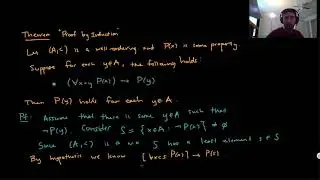 Theorem "Proof by Induction"
Let (A,<) is a well-ordering and P(x) is some property.
Suppose for each y∈A, the following holds:
• (∀x<y P(x)) → P(y)
Then P(y) holds for each y∈A.
Pf: Assume that there is some y∈A such that
¬P(y). Consider S = {x∈A : ¬P(x)} ≠ ∅
Since (A,<) is a w.o. S has a least element s∈S
By hypothesis we know [∀x<s P(x)] → P(s)